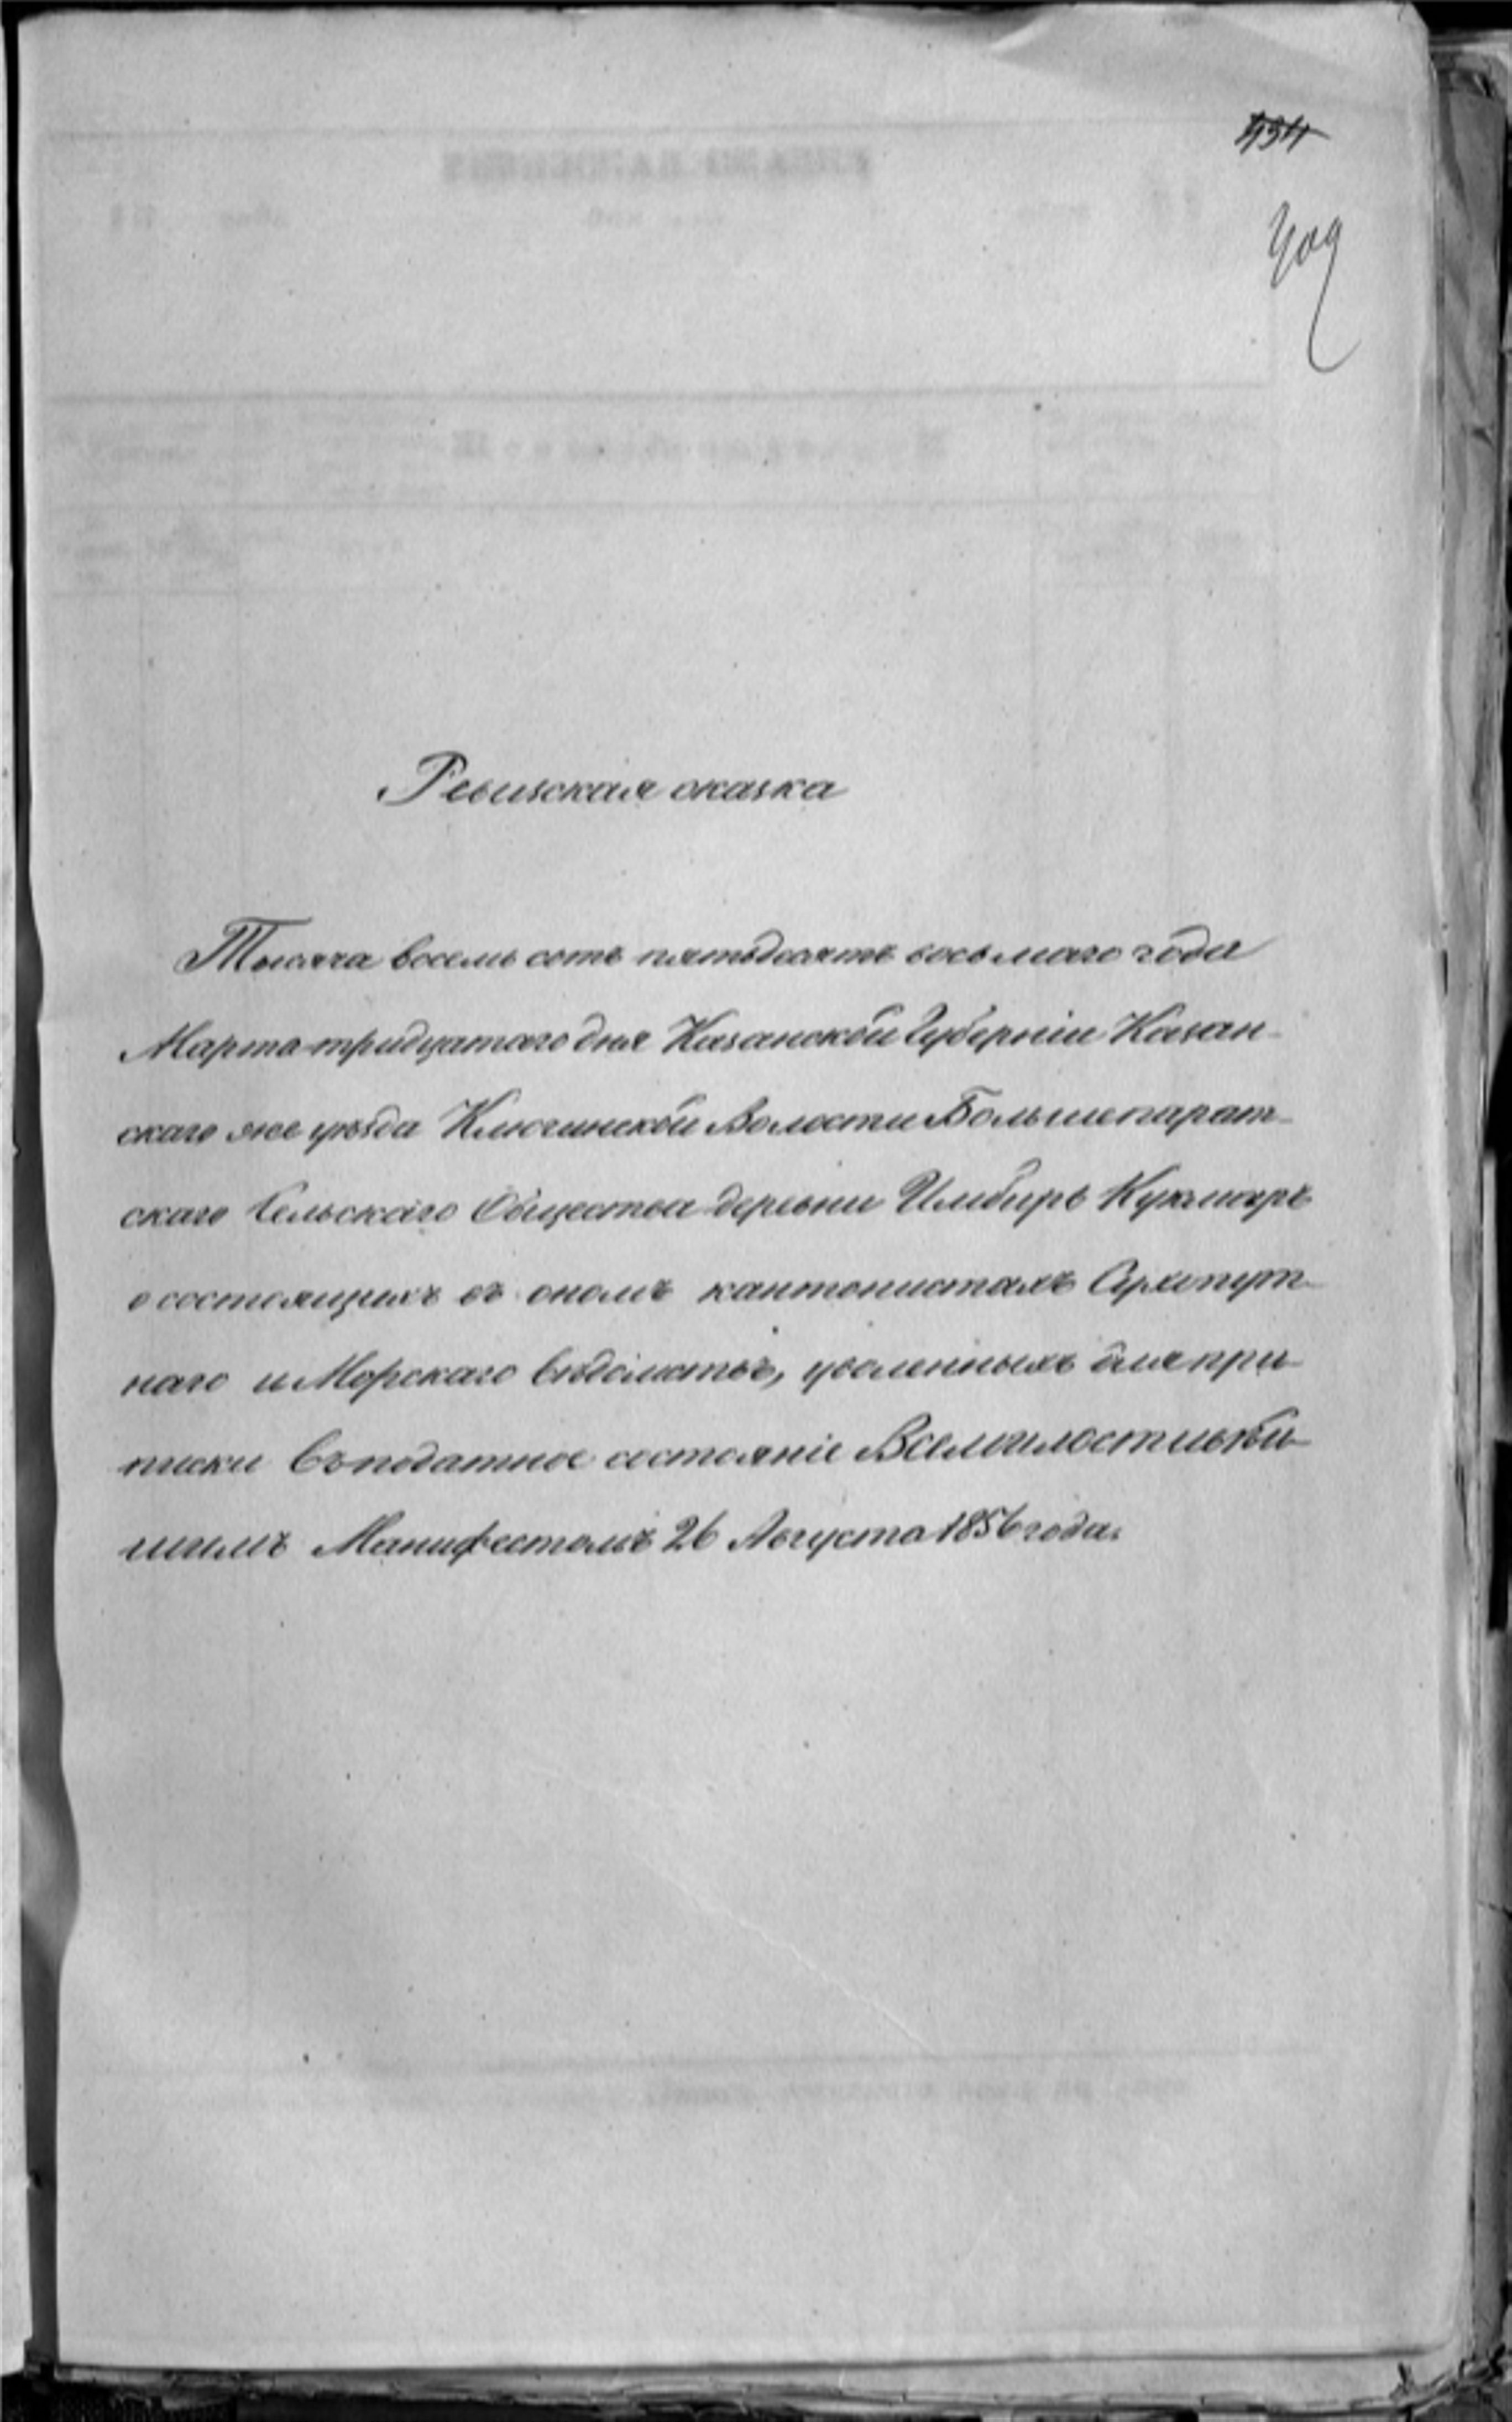 434
409
Ревизская сказка
Тысяча восемь сотъ пятьдесятъ восьмаго года
Марта тридцатаго дня Казанской Губерніи Казан-
скаго же уѣзда Ключинской Волости Большепарат-
скаго Сельскаго Общества деревни Илибиръ Кукмаръ
о состоящихъ въ ономъ кантонистахъ Сухопут-
наго и Морскаго вѣдомствъ, уволенныхъ для при-
писки въ податное состояніе Всемилостивѣй-
шимъ Манифестомъ 26 Августа 1856 года.